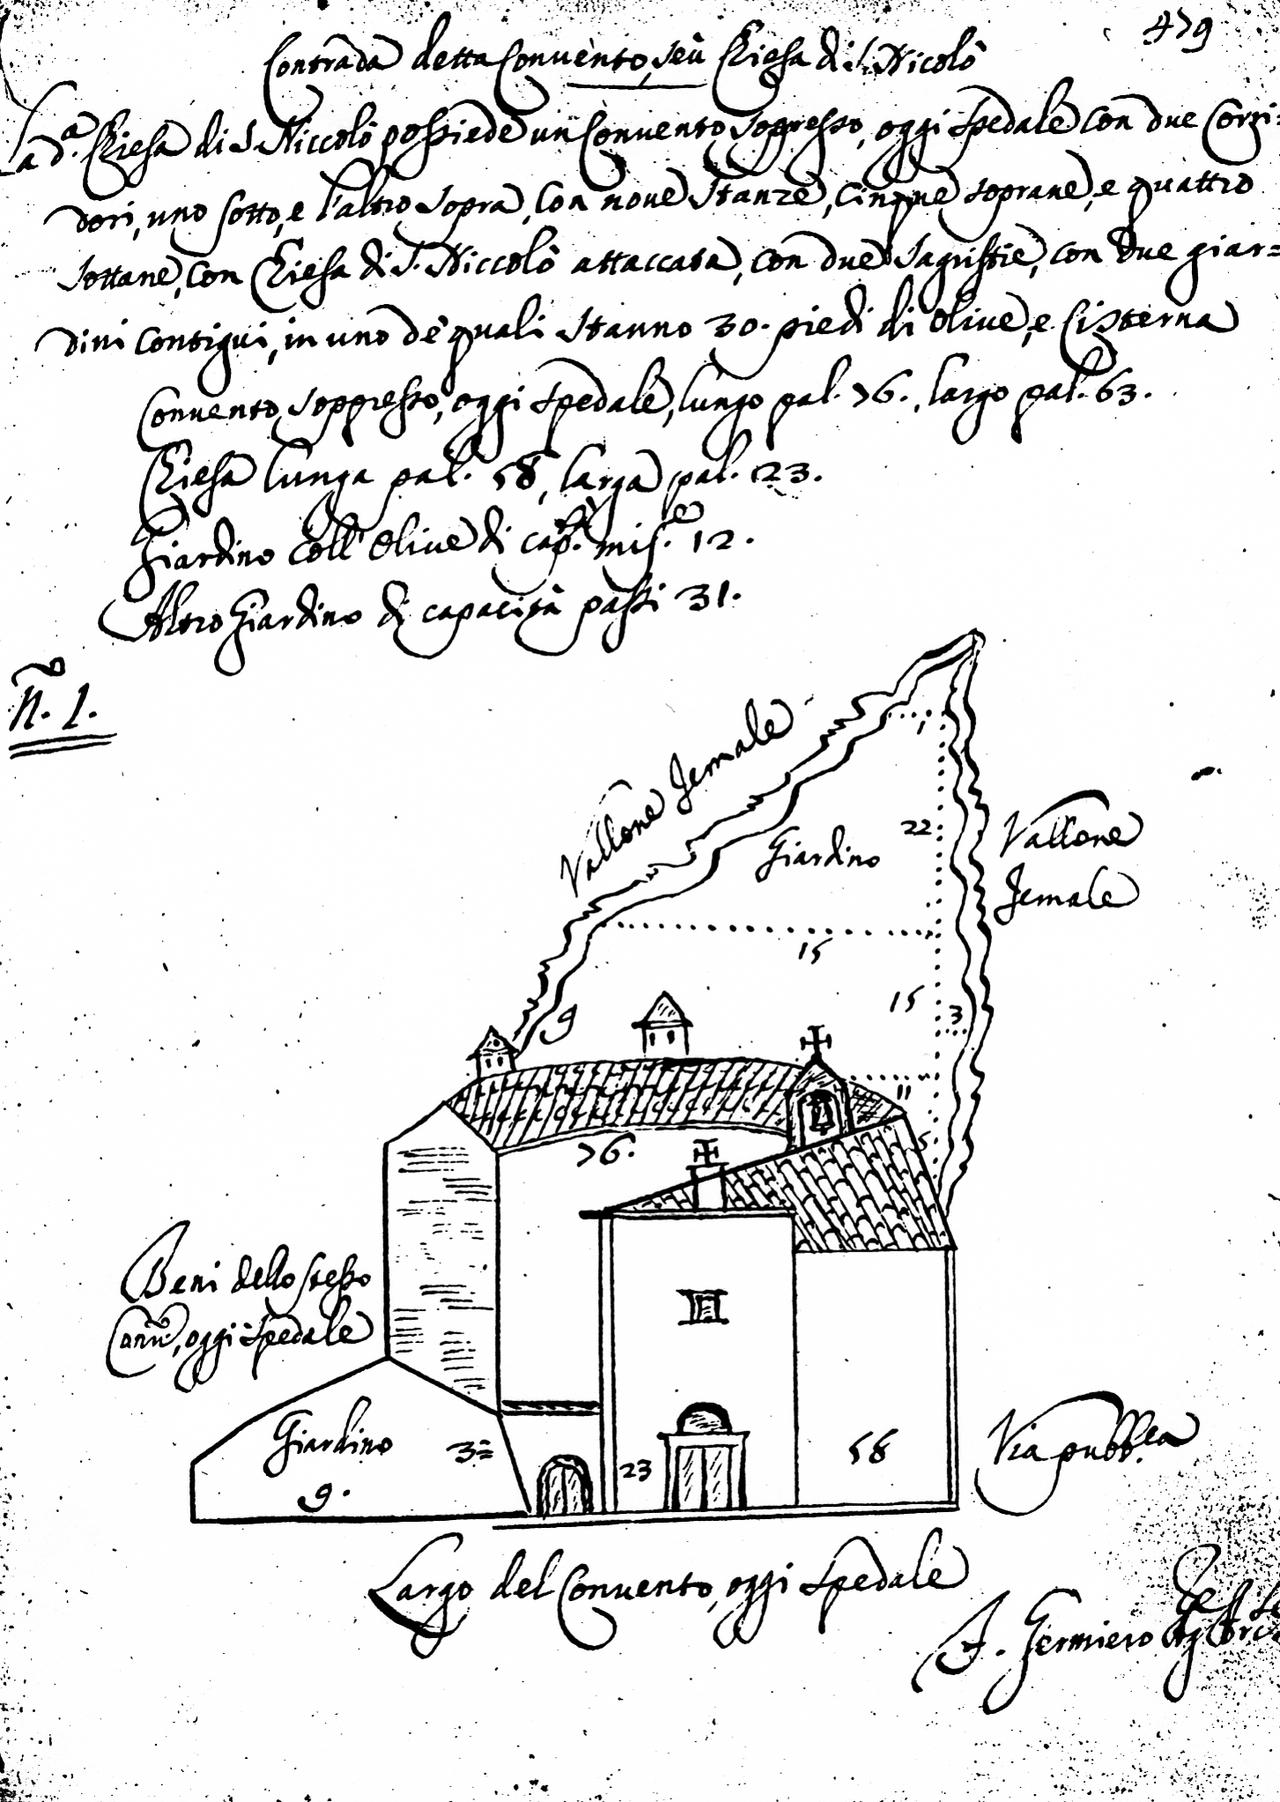 479
Contrada detta Convento, seù Chiesa di S. Nicolò
La d.ª Chiesa di S. Niccolò possiede un Convento soppresso, oggi Spedale con due Corri=
dori, uno sotto, e l'altro sopra, con nove stanze, cinque soprane, e quattro
sottane, con Chiesa di S. Niccolò attaccata, con due sagristie, con due giar=
dini contigui, in uno de quali stanno 30. piedi di olive, e Cisterna
Convento soppresso, oggi Spedale, lungo pal. 76., largo pal. 63.
Chiesa lunga pal. 58, larga pal. 23.
Giardino coll'olive di cap.tà mis.e 12.
Altro Giardino di capacità passi 31.
N.º 1.
Vallone Jemale
1
22
Giardino
Vallone
Jemale
15
15
3
9
11
5
76.
Beni dello stesso
Conv.to, oggi Spedale
Giardino
3
9.
23
58
Via pubb.ca
Largo del Convento, oggi Spedale
Germiero